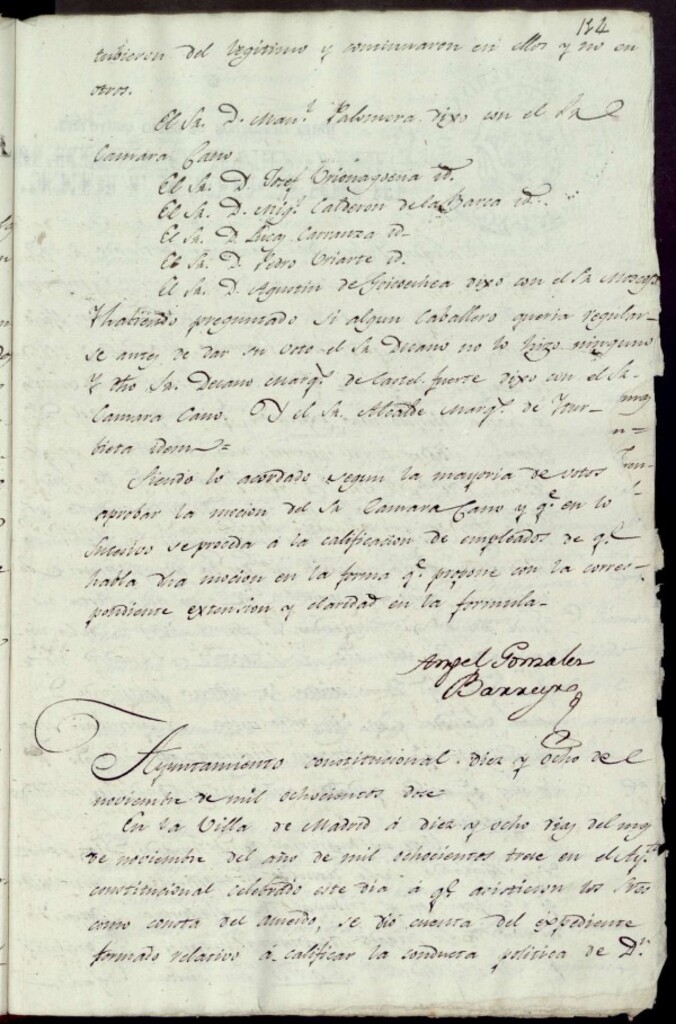 134
tubieron del legitimo y continuaron en ellos y no en
otros.
El Sr. D. Man.l Palomera dixo con el Sr
Camara Cano
El Sr. D. Josef Urionagoena id.
El Sr. D. Mig.l Calderon de la Barca id.
El Sr. D. Lucas Carranza id.
El Sr. D. Pedro Uriarte id.
El Sr. D. Agustin de Goicoechea dixo con el Sr
Y habiendo preguntado si algun Caballero queria regular-
se antes de dar su voto el Sr. Decano no lo hizo ninguno
Y dho Sr. Decano Marq.s de Castel-fuerte dixo con el Sr.
Camara Cano. Y el Sr. Alcalde Marq.s de Ytur-
bieta idem =
Siendo lo acordado segun la mayoria de votos
aprobar la mocion del Sr Camara Cano y q.e en lo
sucesivo se proceda a la calificacion de empleados de q.e
habla dha mocion en la forma q.e propone con la corres-
pondiente extension y claridad en la formula.
Angel Gonzalez
Barreyro
Ayuntamiento constitucional diez y ocho de
noviembre de mil ochocientos doce
En la Villa de Madrid á diez y ocho dias del mes
de noviembre del año de mil ochocientos trece en el Ay.to
constitucional celebrado este dia á q.e asistieron los Sres
como consta del acuerdo, se dió cuenta del expediente
formado relativo á calificar la conducta politica de D.n